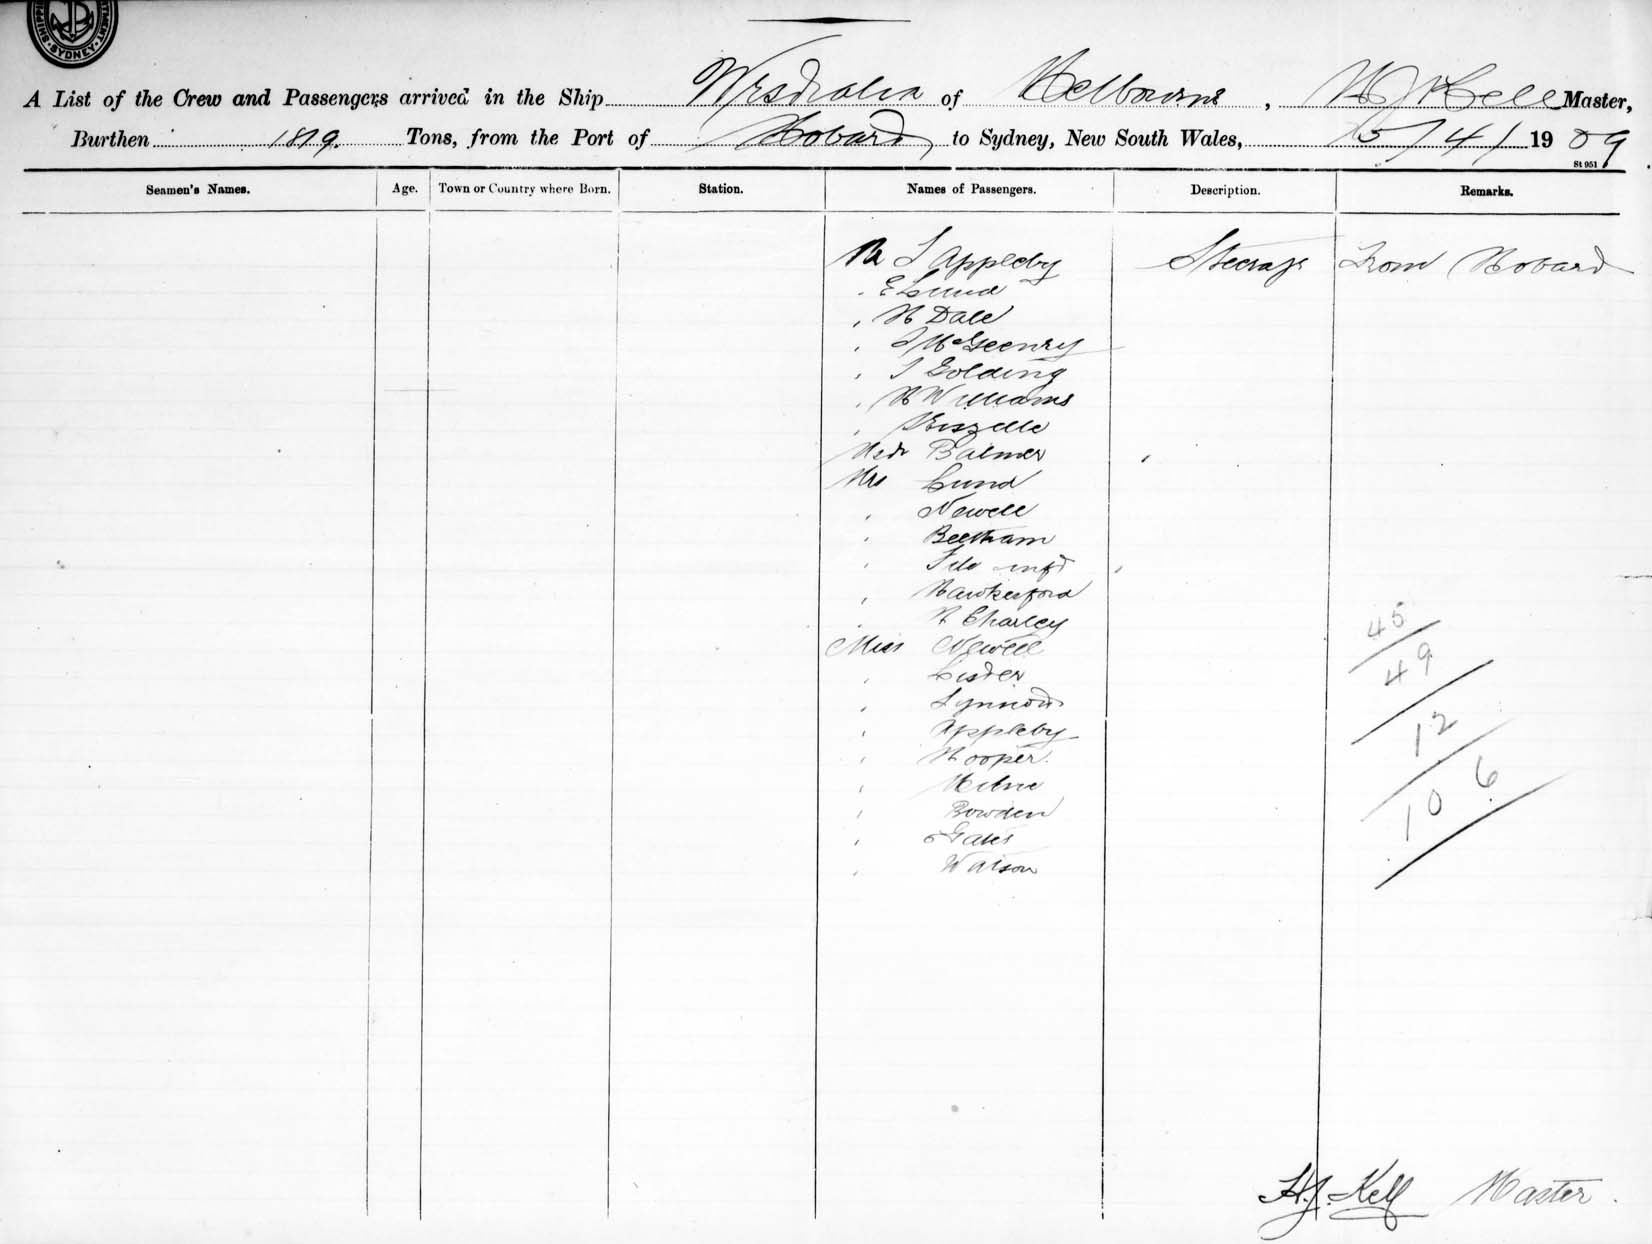 SYDNEY
A List of the Crew and Passengers arrived in the Ship Westralia of Melbourne, H J Kell Master,
Burthen 1819. Tons, from the Port of Hobart to Sydney, New South Wales, 15/4/1909
St 951
Seamen's Names. Age. Town or Country where Born. Station. Names of Passengers. Description. Remarks.
Mr J Appleby Steerage From Hobart
" E Lund
" H Dale
" J McGeenry
" J Golding
" H Williams
Mrs Lund
" Newell
" Beetham
" Hawkesford
" H Charley
Miss Newell
" Lister
" Appleby
" Hooper.
" Milne
" Bowden
" Gates
" Watson
45
49
12
106
H. J. Kell Master.